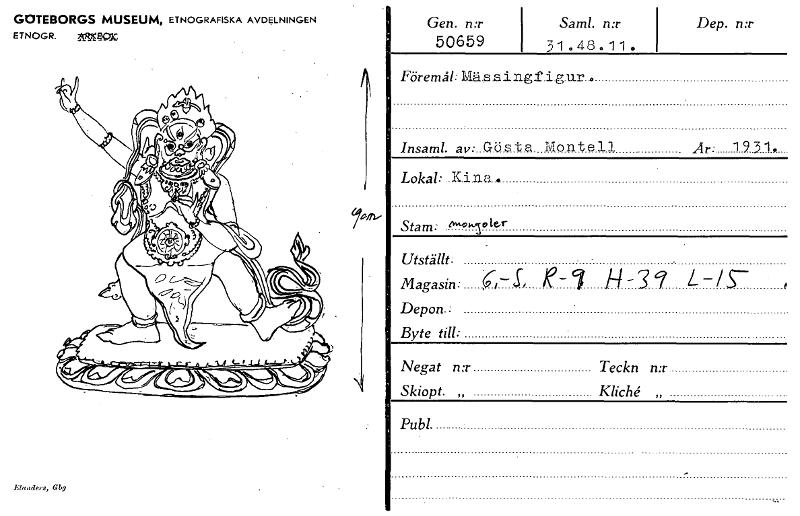 GÖTEBORGS MUSEUM, ETNOGRAFISKA AVDELNINGEN
ETNOGR. ARKBOK
9cm
Elanders, Gbg
Gen. n:r Saml. n:r Dep. n:r
50659 31.48.11.
Föremål: Mässingfigur.
Insaml. av: Gösta Montell År: 1931.
Lokal: Kina.
Stam: mongoler
Utställt.
Magasin: 6,-S. R-9 H-39 L-15
Depon.:
Byte till:
Negat n:r Teckn n:r
Skiopt. „ Kliché „
Publ.